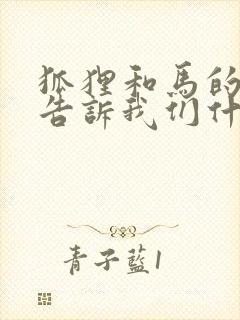 狐狸和馬的
告訴我们什
青子藍1